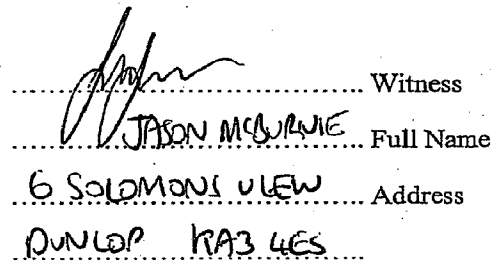 Witness
JASON MCBURNIE Full Name
6 SOLOMONS VIEW Address
DUNLOP KA3 4ES